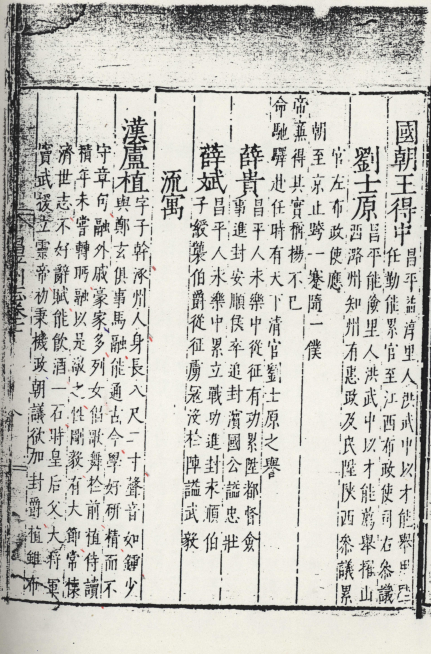 國朝王得中昌平孟淳里人洪武中以才能舉
任勤能累官至江西布政使司右參議
劉士原昌平能儉里人洪武中以才能薦舉授山
西潞州知州有惠政及民陞陜西參議累
官左布政使應
朝至京止跨一蹇隨一僕
帝廉得其實稱揚不已
命馳驛赴任時有天下清官劉士原之譽
薛貴昌平人永樂中從征有功累陞都督僉
事進封安順侯卒追封濱國公諡忠壯
薛斌昌平人永樂中累立戰功進封永順伯
子綬襲伯爵從征虜寇沒於陣諡武毅
流寓
漢盧植字子幹涿州人身長八尺二寸聲音如鐘少
與鄭玄俱事馬融能通古今學好研精而不
守章句融外戚豪家多列女倡歌舞於前植侍讀
積年未嘗轉眄融以是敬之性剛毅有大節常懷
濟世志不好辭賦能飲酒一石時皇后父大將軍
竇武援立靈帝初秉機政朝議欲加封爵植雖布